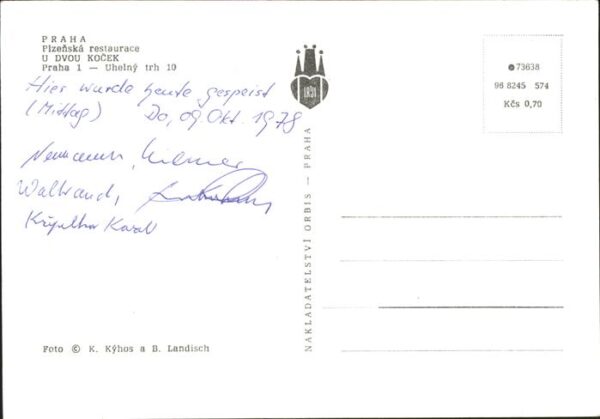 PRAHA
Plzeňská restaurace
U DVOU KOČEK
Praha 1 — Uhelný trh 10
Hier wurde heute gespeist
(Mittag) Do, 09. Okt. 1978
Waltraud,
NAKLADATELSTVÍ ORBIS — PRAHA
73638
96 8245 574
Kčs 0,70
Foto © K. Kýhos a B. Landisch